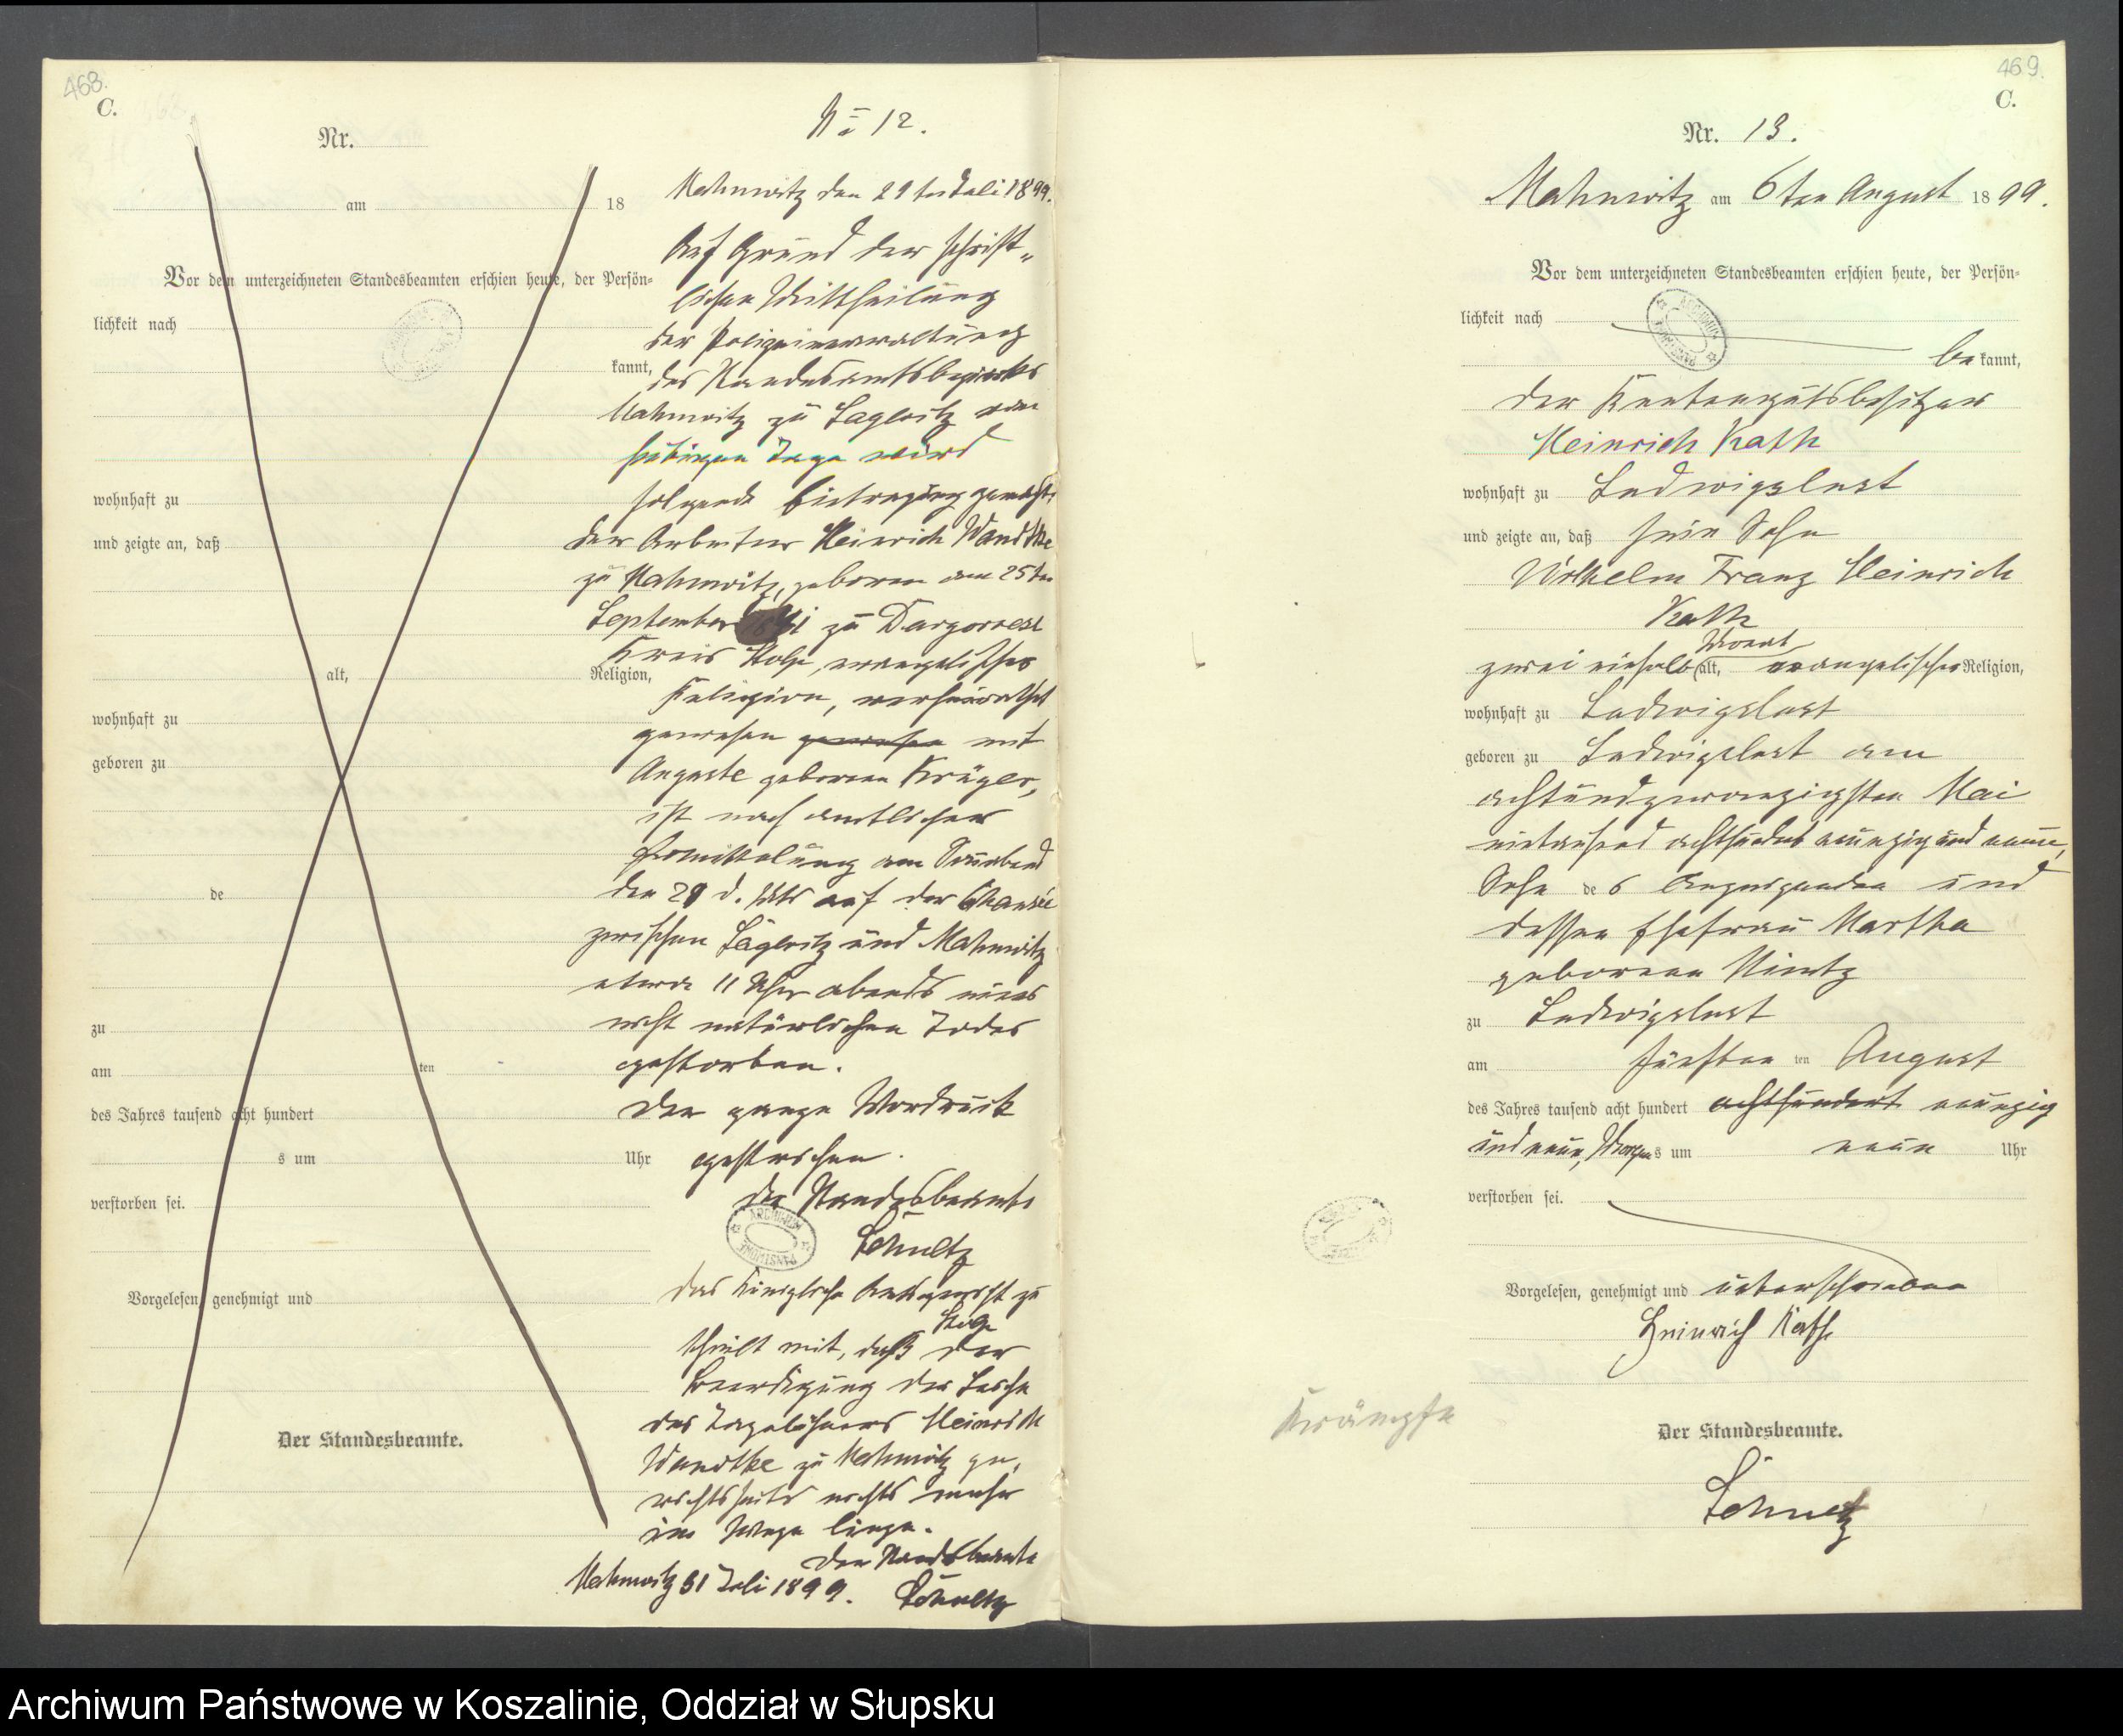 468.
C.
Nr.
am 18
Vor dem unterzeichneten Standesbeamten erschien heute, der Persön=
lichkeit nach
kannt,
wohnhaft zu
und zeigte an, daß
alt, Religion,
wohnhaft zu
geboren zu
de
zu
am ten
des Jahres tausend acht hundert
s um Uhr
verstorben sei.
Vorgelesen, genehmigt und
Der Standesbeamte.
No 12.
Mahnwitz den 29 ten Juli 1899.
Auf Grund der schrift-
lichen Mittheilung
der Polizeiverwaltung
des Standesamtsbezirks
Mahnwitz zu Zagwitz vom
heutigen Tage wird
folgende Eintragung gemacht:
der Arbeiter Heinrich Wandtke
zu Mahnwitz, geboren am 25 ten
September zu Dargerrese
Kreis Stolp, evangelischer
Religion, verheirathet
gewesen gewesen mit
Auguste geborenen Krüger,
ist nach amtlicher
Ermittelung am Sonnabend
den 29 d. Mts auf der Chaussee
zwischen Zagwitz und Mahnwitz
etwa 11 Uhr abends eines
nicht natürlichen Todes
gestorben.
Der ganze Vordruck
gestrichen.
Der Standesbeamte
Schultz
ARCHIWUM PAŃSTWOWE
Das Königliche Amtsgericht zu
Stolp
theilt mit, daß der
Beerdigung der Leiche
des Tagelöhners Heinrich
Wandtke zu Mahnwitz ge-
richtsseits nichts mehr
im Wege liege.
Der Standesbeamte
Mahnwitz 31 Juli 1899. Schultz
469.
C.
Nr. 13.
Mahnwitz am 6 ten August 1899.
Vor dem unterzeichneten Standesbeamten erschien heute, der Persön=
lichkeit nach
ARCHIWUM PAŃSTWOWE
be kannt,
der Rentengutsbesitzer
Heinrich Kath
wohnhaft zu Ludwigslust
und zeigte an, daß sein Sohn
Wilhelm Franz Heinrich
Kath
Monat
zwei einhalb alt, evangelischer Religion,
wohnhaft zu Ludwigslust
geboren zu Ludwigslust am
achtundzwanzigsten Mai
eintausend achthundert neunzig und neun,
Sohn des Anzeigenden und
dessen Ehefrau Martha
geborenen Nimtz
zu Ludwigslust
am fünften ten August
des Jahres tausend acht hundert achthundert neunzig
und neun, Morgens um neun Uhr
verstorben sei.
Vorgelesen, genehmigt und unterschrieben
Heinrich Kath
Krämpfe
Der Standesbeamte.
Schultz
Archiwum Państwowe w Koszalinie, Oddział w Słupsku